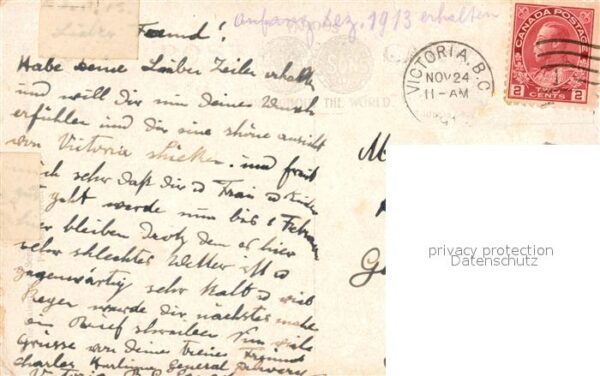 anfang Dez. 1913 erhalten
Lieber Freund!
Habe deine Lieben Zeilen erhalten
und will dir nun deinen Wunsch
erfühlen und dir eine shöne ansicht
von Victoria shicken. und freut
mich sehr daß die Frau
geht werde nun bis 1 Februar
hier bleiben Trotz dem es hier
sehr shlechtes Wetter ist
gegenwärtig sehr kalt viel
Regen werde dir nächstes mahl
ein Brief shreiben Nun viele
Grüsse von deinem treuen Freund
Charles General Delivery
Victoria B.C.
ROUND THE WORLD.
VICTORIA, B.C.
NOV 24
11-AM
CANADA POSTAGE
2 TWO CENTS 2
privacy protection
Datenschutz